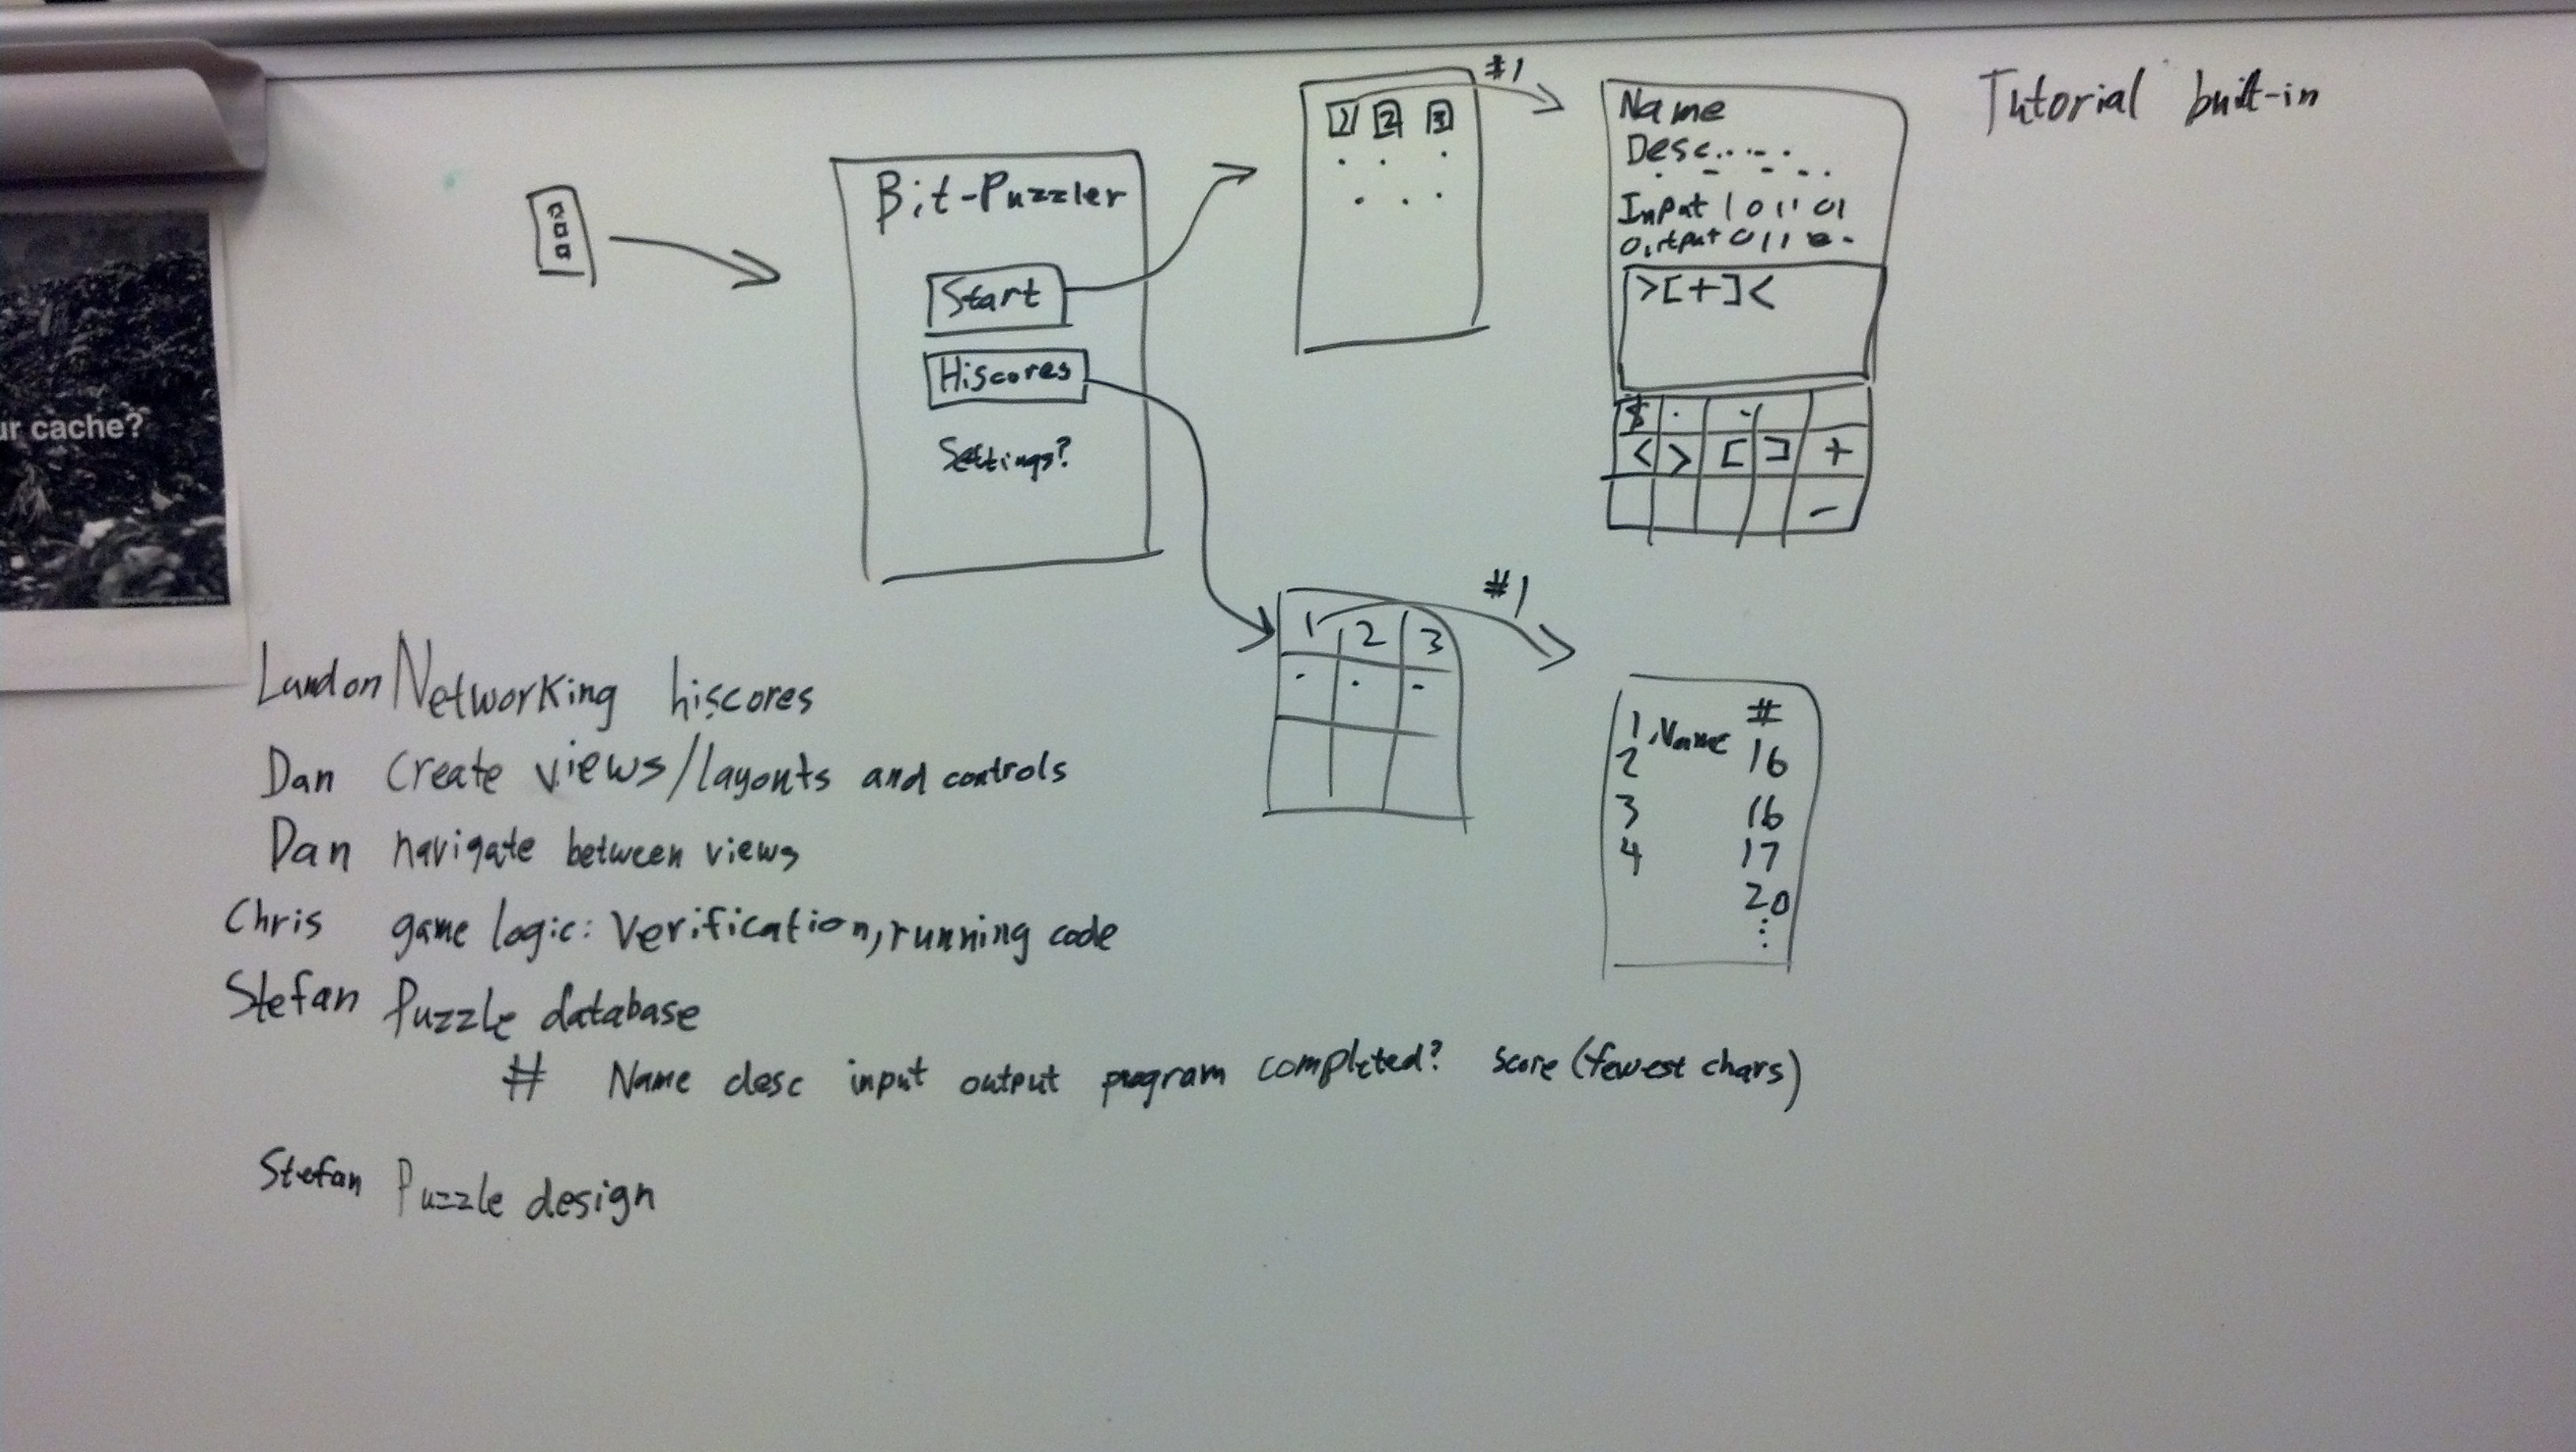 ur cache?
Bit-Puzzler
Start
Hiscores
Settings?
1 2 3
#1
Name
Desc.....
Input 101101
Output 011
>[+]<
$ . ,
< > [ ] +
-
Tutorial built-in
1 2 3
#1
#
1. Name 16
2
3 16
4 17
20
Landon Networking hiscores
Dan Create views/layouts and controls
Dan navigate between views
Chris game logic: Verification, running code
Stefan Puzzle database
# Name desc input output program completed? score (fewest chars)
Stefan Puzzle design